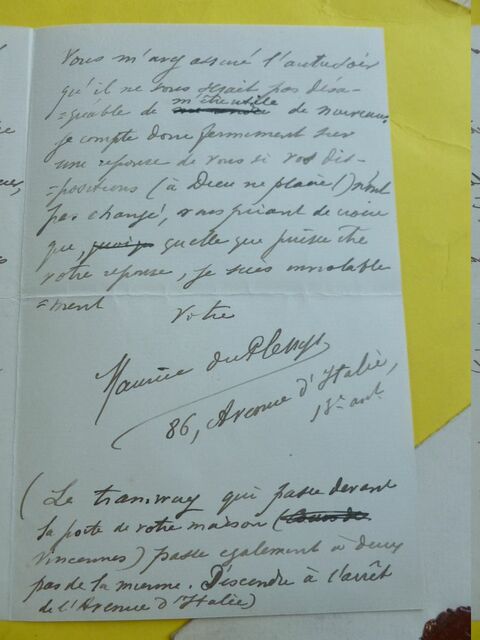 Vous m'avez assuré l'autre soir
qu'il ne vous serait pas désa-
=gréable de m'être utile de nouveau.
je compte donc fermement sur
une réponse de vous si vos dis-
=positions (à Dieu ne plaise!) n'ont
pas changé, vous priant de croire
que, quelle que puisse être
votre réponse, je suis inviolable
=ment Votre
Maurice du Plessys
86, Avenue d'Italie,
13e arrt
(Le tramway qui passe devant
la porte de votre maison (Cours de
Vincennes) passe également à deux
pas de la mienne. Descendre à l'arrêt
de l'Avenue d'Italie)